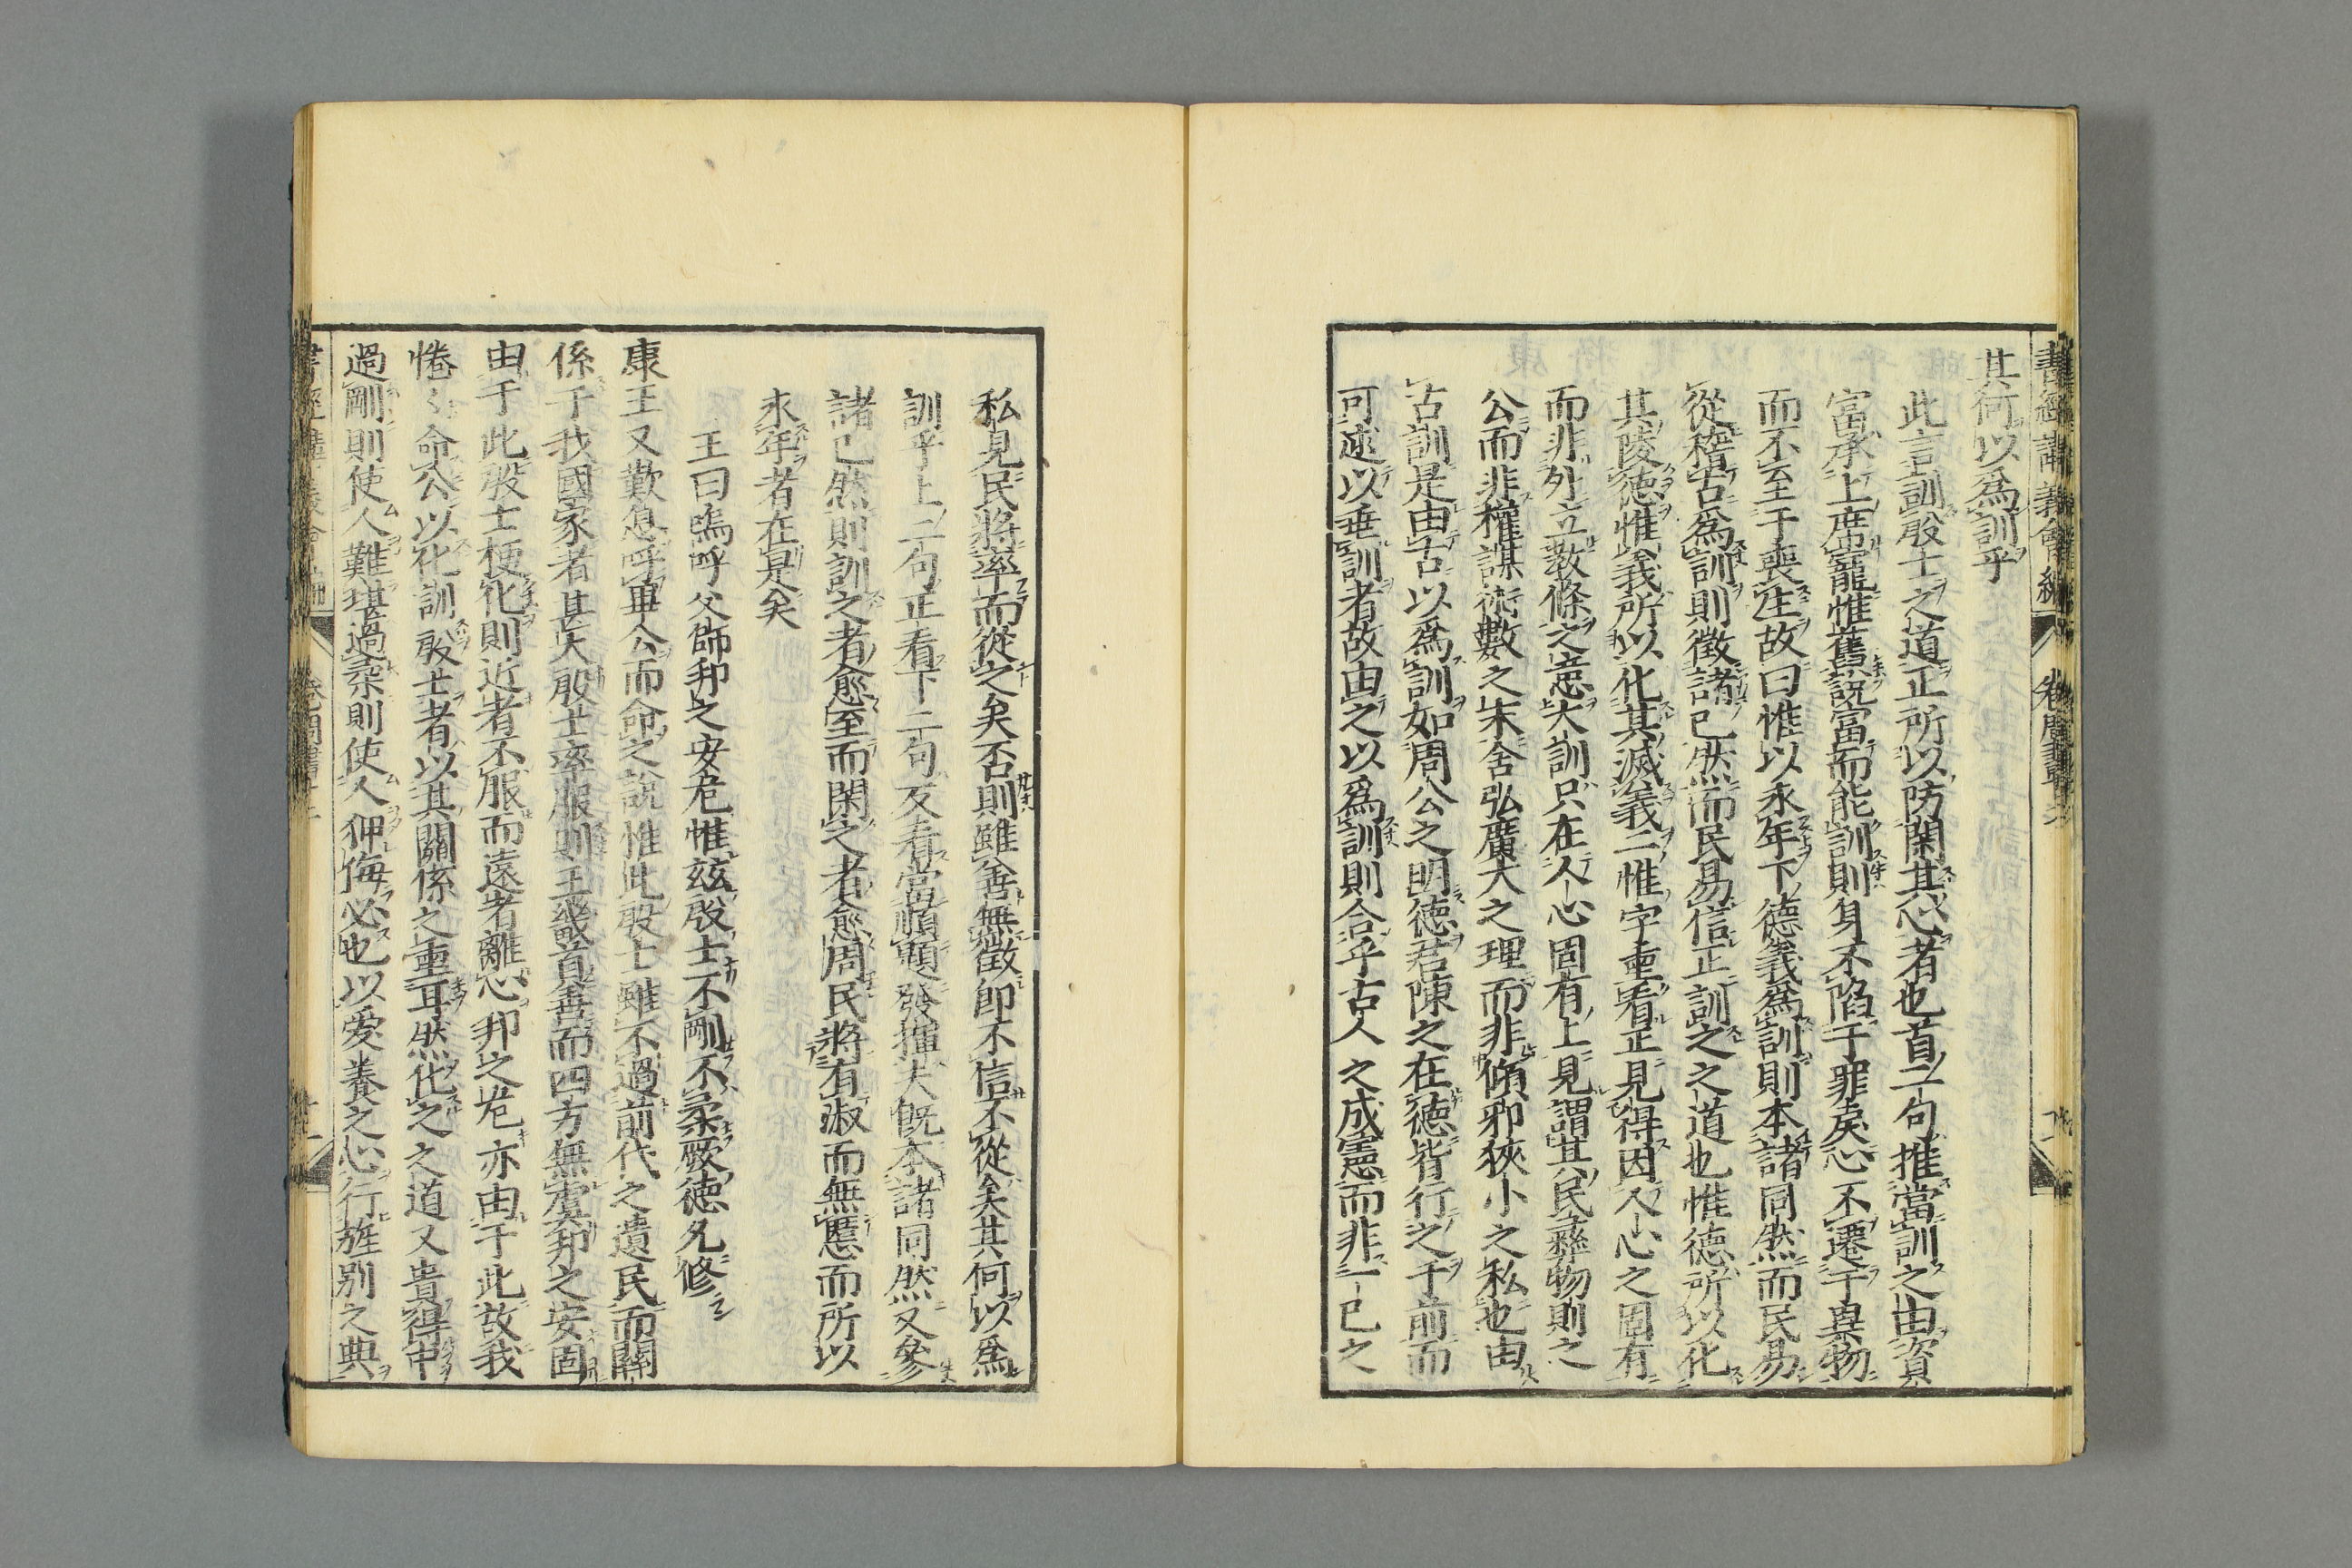 其何以爲訓乎
此言訓殷士之道正所以防閑其心者也首二句推當訓之由資
富承上席寵惟舊說富而能訓則身不陷于罪戾心不遷于異物
而不至于喪生故曰惟以永年下德義爲訓則本諸同然而民易
從稽古爲訓則徵諸已然而民易信正訓之之道也惟德所以化
其陵德惟義所以化其滅義二惟字重看正見得因人心之固有
而非外立教條之意大訓只在人心固有上見謂其民彝物則之
公而非權謀術數之末舍弘廣大之理而非傾邪狹小之私也由
古訓是由古以爲訓如周公之明德君陳之在德皆行之于前而
可述以垂訓者故由之以爲訓則合乎古人之成憲而非一己之
私見民將率而從之矣否則雖善無徵卽不信不從矣其何以爲
訓乎上二句正看下二句反看當順題發揮大旣本諸同然又參
諸已然則訓之者愈至而閑之者愈周民將有淑而無慝而所以
永年者在是矣
王曰嗚呼父師邦之安危惟玆殷士不剛不柔厥德允修
康王又歎息呼畢公而命之說惟此殷士雖不過前代之遺民而關
係于我國家者甚大殷士率服則王畿首善而四方無虞邦之安固
由于此殷士梗化則近者不服而遠者離心邦之危亦由于此故我
惓〻命公以化訓殷士者以其關係之重耳然化之之道又貴得中
過剛則使人難堪過柔則使人狎侮必也以愛養之心行旌別之典